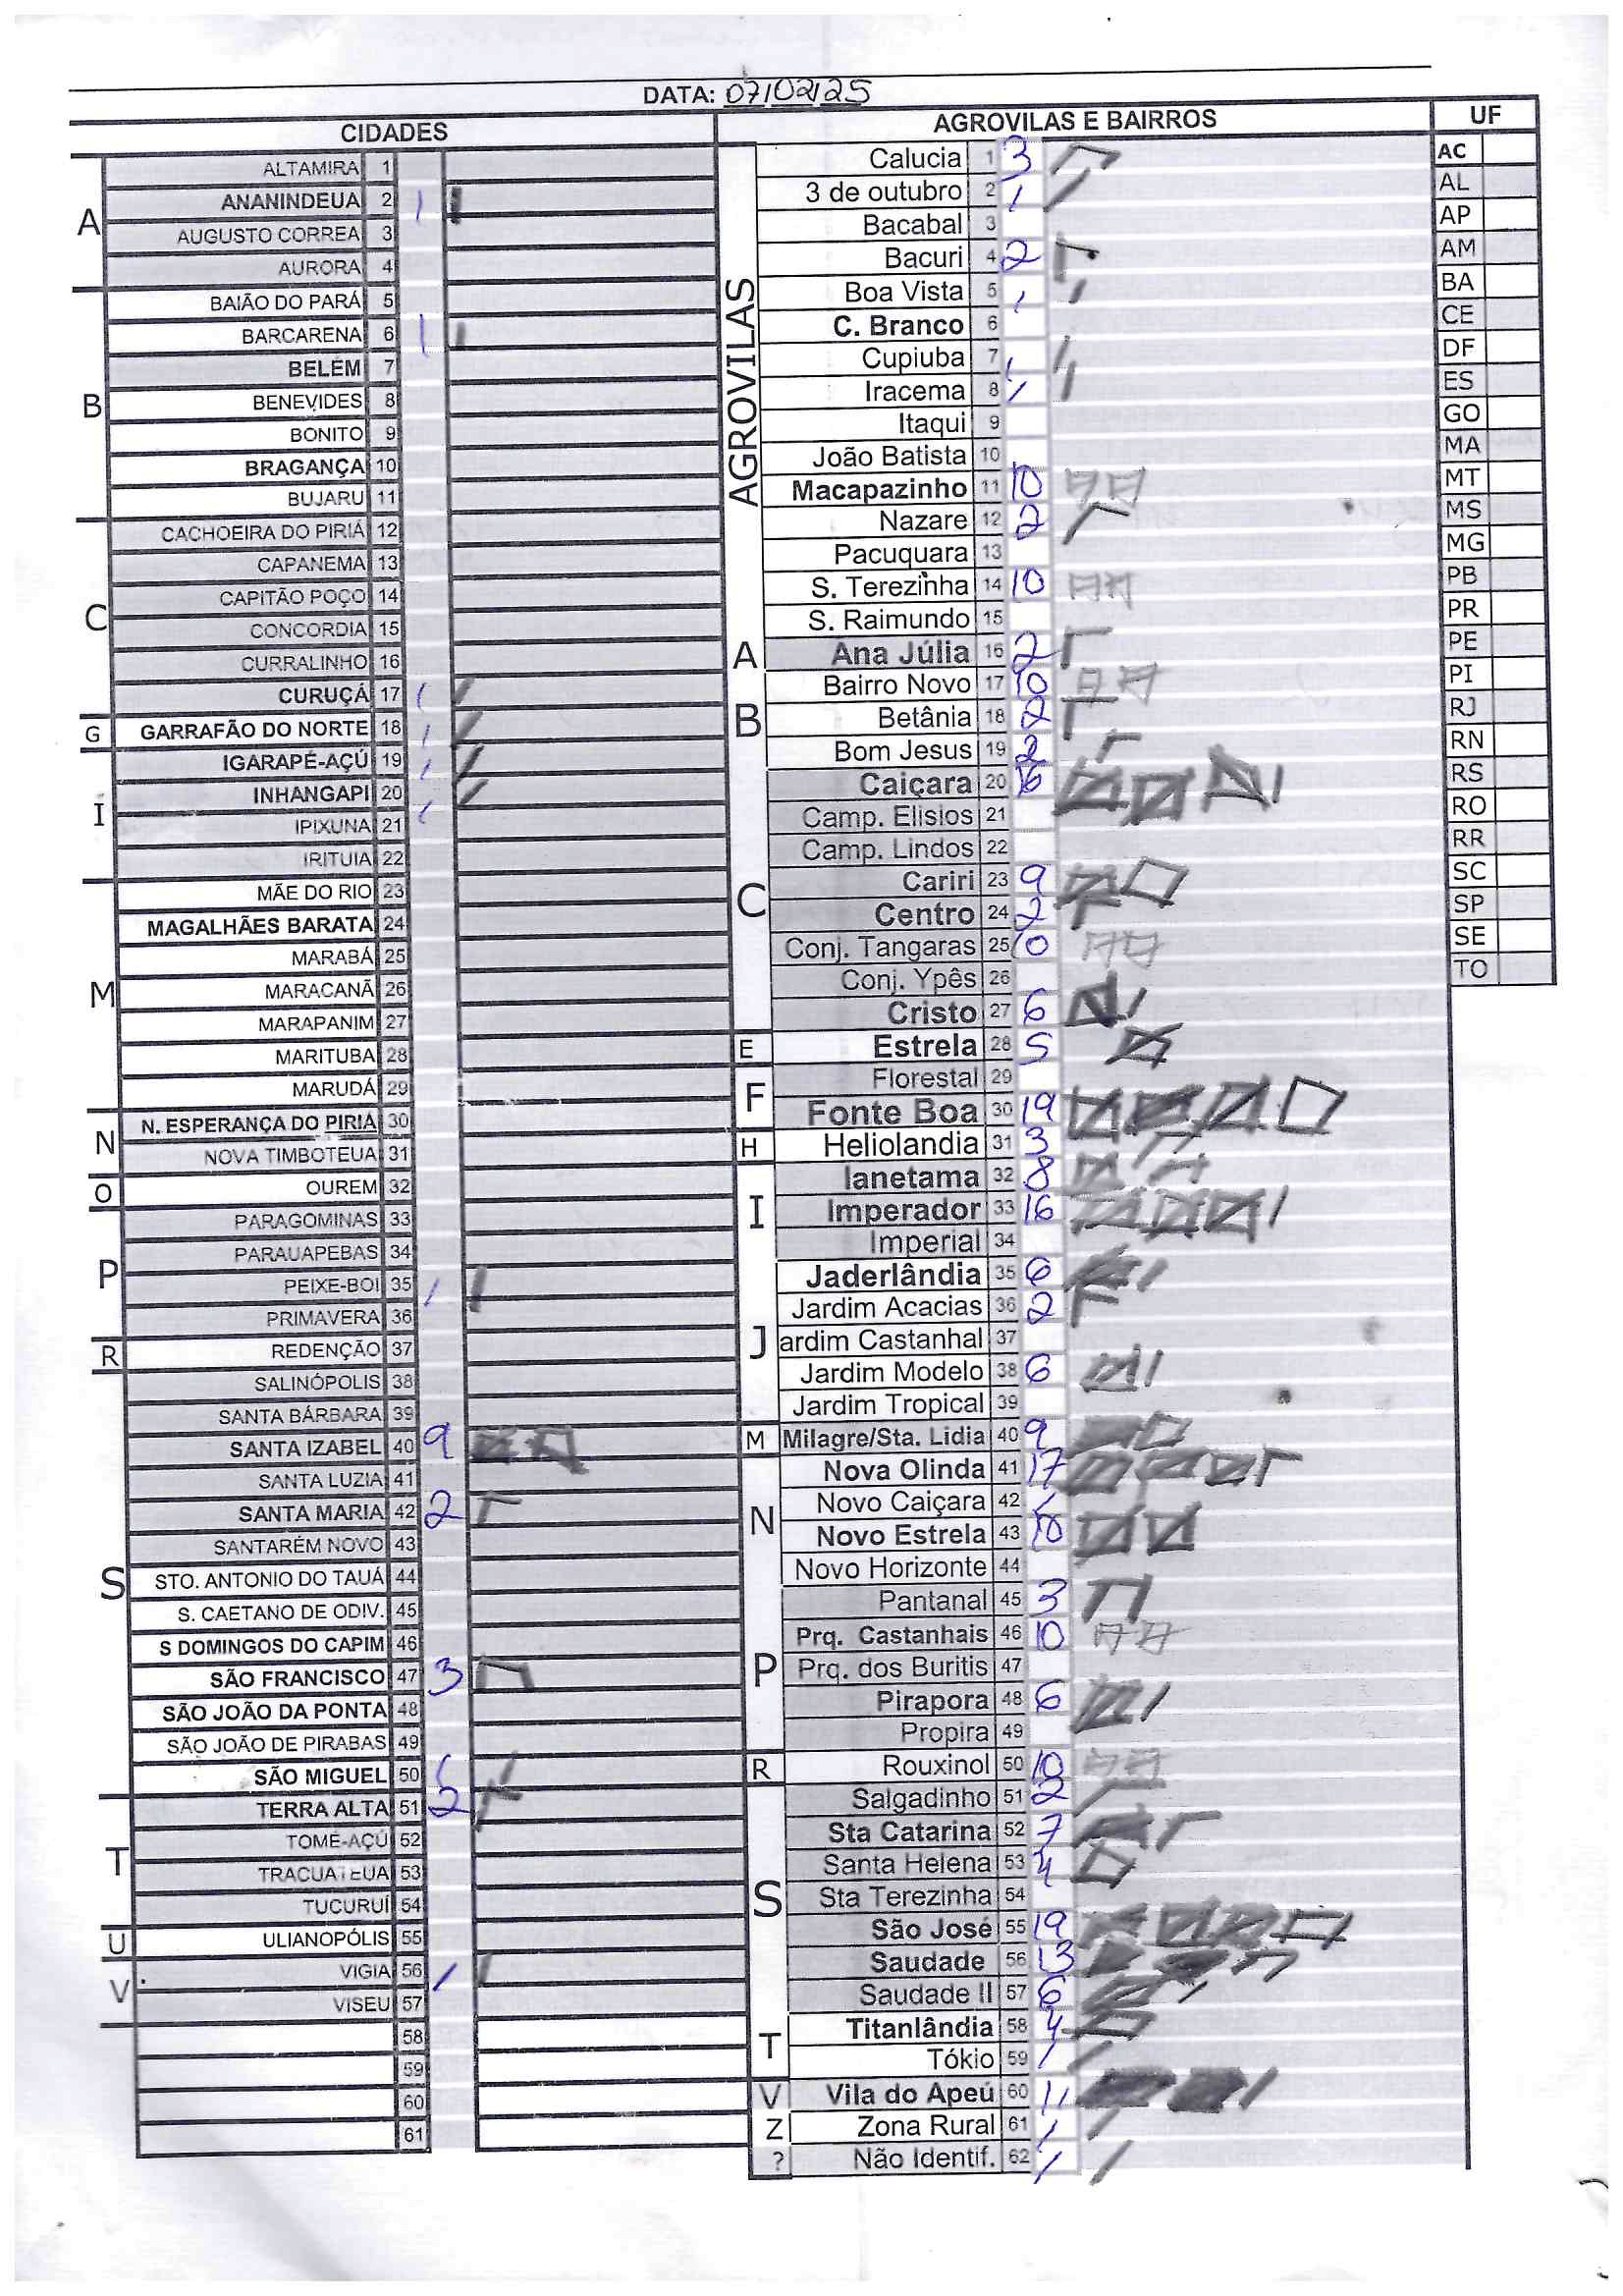 DATA: 07/02/25
CIDADES
A
ALTAMIRA 1
ANANINDEUA 2 1
AUGUSTO CORREA 3
AURORA 4
B
BAIÃO DO PARÁ 5
BARCARENA 6 1
BELÉM 7
BENEVIDES 8
BONITO 9
BRAGANÇA 10
BUJARU 11
C
CACHOEIRA DO PIRIÁ 12
CAPANEMA 13
CAPITÃO POÇO 14
CONCORDIA 15
CURRALINHO 16
CURUÇÁ 17 1
G
GARRAFÃO DO NORTE 18 1
I
IGARAPÉ-AÇÚ 19 1
INHANGAPI 20 1
IPIXUNA 21
IRITUIA 22
M
MÃE DO RIO 23
MAGALHÃES BARATA 24
MARABÁ 25
MARACANÃ 26
MARAPANIM 27
MARITUBA 28
MARUDÁ 29
N
N. ESPERANÇA DO PIRIA 30
NOVA TIMBOTEUA 31
O
OUREM 32
P
PARAGOMINAS 33
PARAUAPEBAS 34
PEIXE-BOI 35 1
PRIMAVERA 36
R
REDENÇÃO 37
S
SALINÓPOLIS 38
SANTA BÁRBARA 39
SANTA IZABEL 40 9
SANTA LUZIA 41
SANTA MARIA 42 2
SANTARÉM NOVO 43
STO. ANTONIO DO TAUÁ 44
S. CAETANO DE ODIV. 45
S DOMINGOS DO CAPIM 46
SÃO FRANCISCO 47 3
SÃO JOÃO DA PONTA 48
SÃO JOÃO DE PIRABAS 49
SÃO MIGUEL 50 1
T
TERRA ALTA 51 2
TOMÉ-AÇÚ 52
TRACUATEUA 53
TUCURUÍ 54
U
ULIANOPÓLIS 55
V
VIGIA 56 1
VISEU 57
58
59
60
61
AGROVILAS E BAIRROS
AGROVILAS
Calucia 1 3
3 de outubro 2 1
Bacabal 3
Bacuri 4 2
Boa Vista 5 1
C. Branco 6
Cupiuba 7 1
Iracema 8 1
Itaqui 9
João Batista 10
Macapazinho 11 10
Nazare 12 2
Pacuquara 13
S. Terezinha 14 10
S. Raimundo 15
A
Ana Júlia 16 2
B
Bairro Novo 17 10
Betânia 18 2
Bom Jesus 19 2
C
Caiçara 20 16
Camp. Elisios 21
Camp. Lindos 22
Cariri 23 9
Centro 24 2
Conj. Tangaras 25 10
Conj. Ypês 26
Cristo 27 6
E
Estrela 28 5
F
Florestal 29
Fonte Boa 30 19
H
Heliolandia 31 3
I
Ianetama 32 8
Imperador 33 16
Imperial 34
J
Jaderlândia 35 6
Jardim Acacias 36 2
ardim Castanhal 37
Jardim Modelo 38 6
Jardim Tropical 39
M
Milagre/Sta. Lidia 40 9
N
Nova Olinda 41 17
Novo Caiçara 42 1
Novo Estrela 43 10
Novo Horizonte 44
P
Pantanal 45 3
Prq. Castanhais 46 10
Prq. dos Buritis 47
Pirapora 48 6
Propira 49
R
Rouxinol 50 10
S
Salgadinho 51 2
Sta Catarina 52 7
Santa Helena 53 4
Sta Terezinha 54
São José 55 19
Saudade 56 13
Saudade II 57 6
T
Titanlândia 58 4
Tókio 59 1
V
Vila do Apeú 60 11
Z
Zona Rural 61 1
?
Não Identif. 62 1
UF
AC
AL
AP
AM
BA
CE
DF
ES
GO
MA
MT
MS
MG
PB
PR
PE
PI
RJ
RN
RS
RO
RR
SC
SP
SE
TO